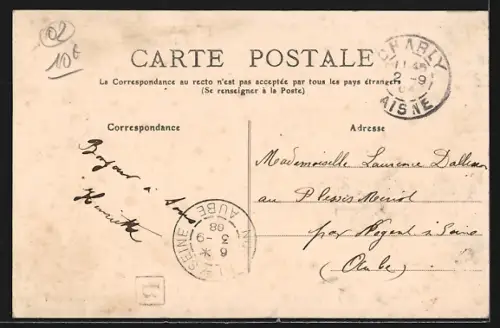 02
10€
CARTE POSTALE
La Correspondance au recto n'est pas acceptée par tous les pays étrangers
(Se renseigner à la Poste)
CHARLY
2 -9
AISNE
Correspondance
Adresse
Bonjour à tous
Henriette
Mademoiselle Laurence
au Plessis
par Nogent s/ Seine
(Aube)
SEINE
AUBE
6 *
3 -9
08
B